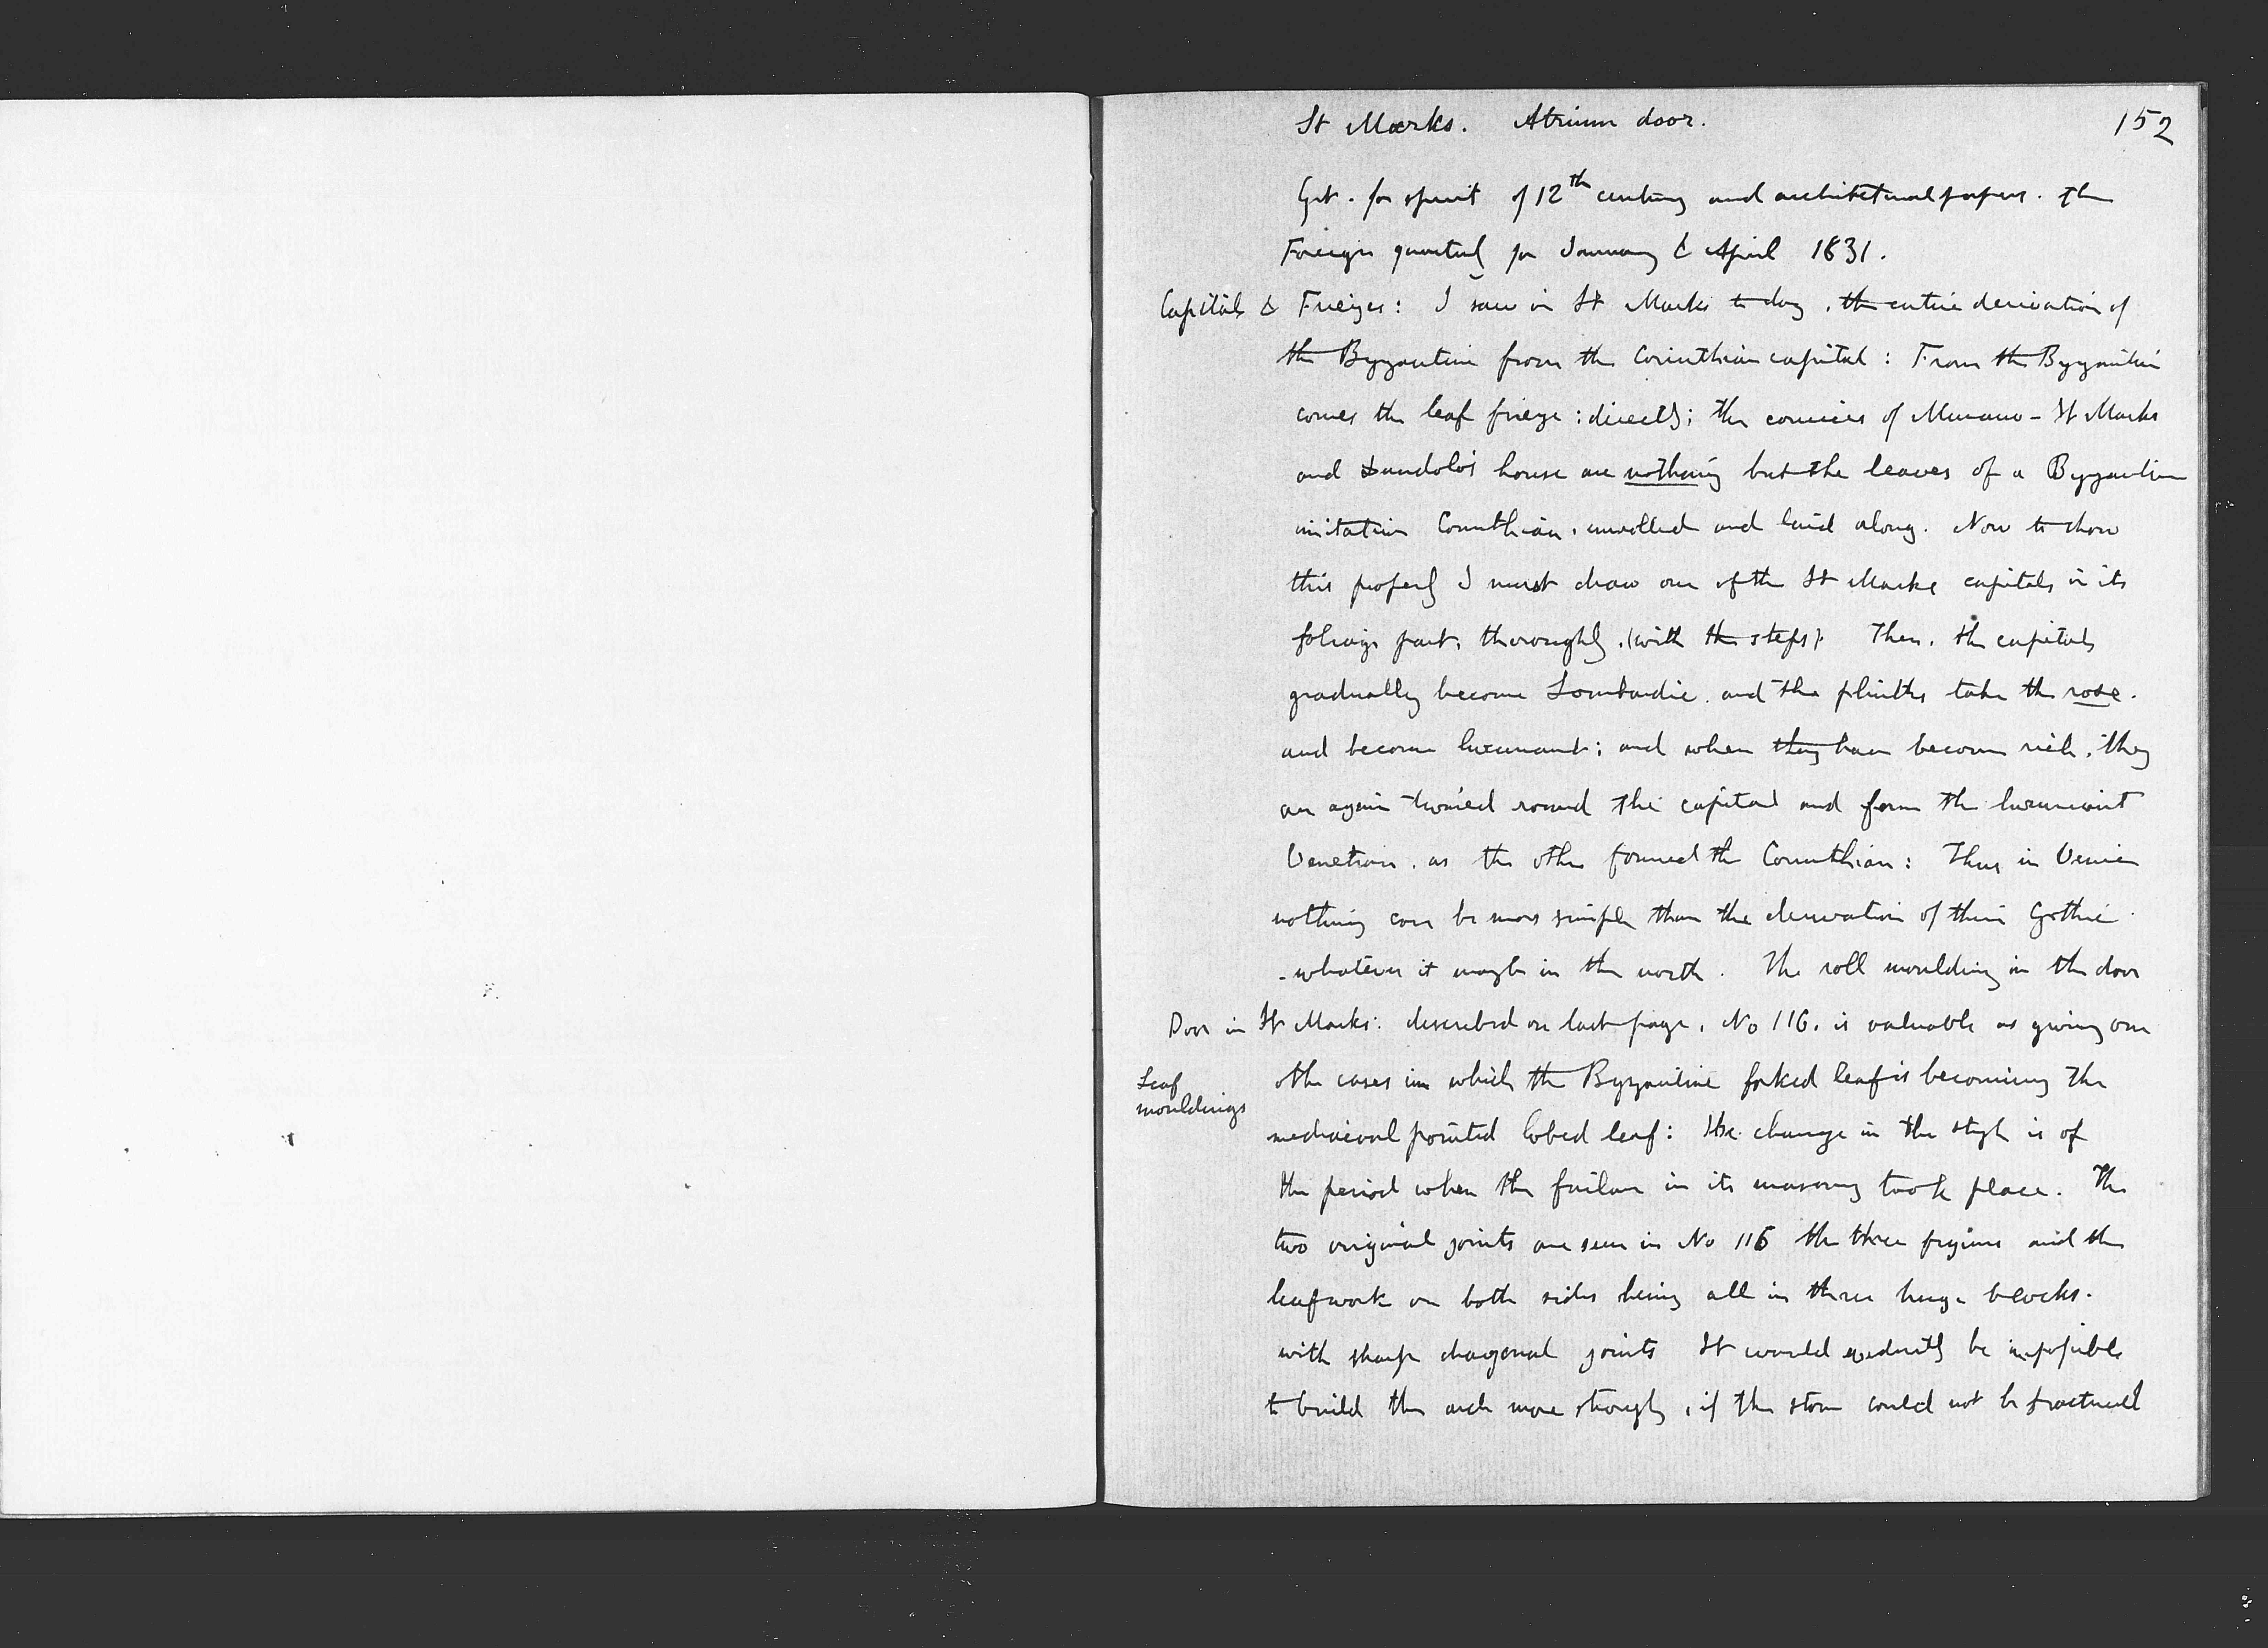 St Marks. Atrium door. 152
Get. for spirit of 12th century and architectural papers. The
Foreign quarterly for January & April 1831.
Capitals & Friezes: I saw in St Marks to day, the entire derivation of
the Byzantine from the Corinthian capital: From the Byzantine
comes the leaf frieze: directly; the cornices of Murano - St Marks
and Dandolo's house are nothing but the leaves of a Byzantine
imitation Corinthian, unrolled and laid along. Now to show
this properly I must draw one of the St Marks capitals in its
foliage part, thoroughly, (with the steps). Then, the capitals
gradually become Lombardic. and the plinths take the rose.
and become luxuriant; and when they have become rich, they
are again twined round the capital and form the luxuriant
Venetian. as the other formed the Corinthian: Thus in Venice
nothing can be more simple than the derivation of their Gothic
- whatever it may be in the north. The roll moulding in the door
Door in St Marks: described on last page, No 116. is valuable as giving one
Leaf mouldings
other cases in which the Byzantine forked leaf is becoming the
mediaeval pointed lobed leaf: the change in the style is of
the period when the failure in its masonry took place. The
two original joints are seen in No 116 the three figures and the
leafwork on both sides being all in three huge blocks.
with sharp diagonal joints It would evidently be impossible
to build the arch more strongly, if the stone could not be fractured